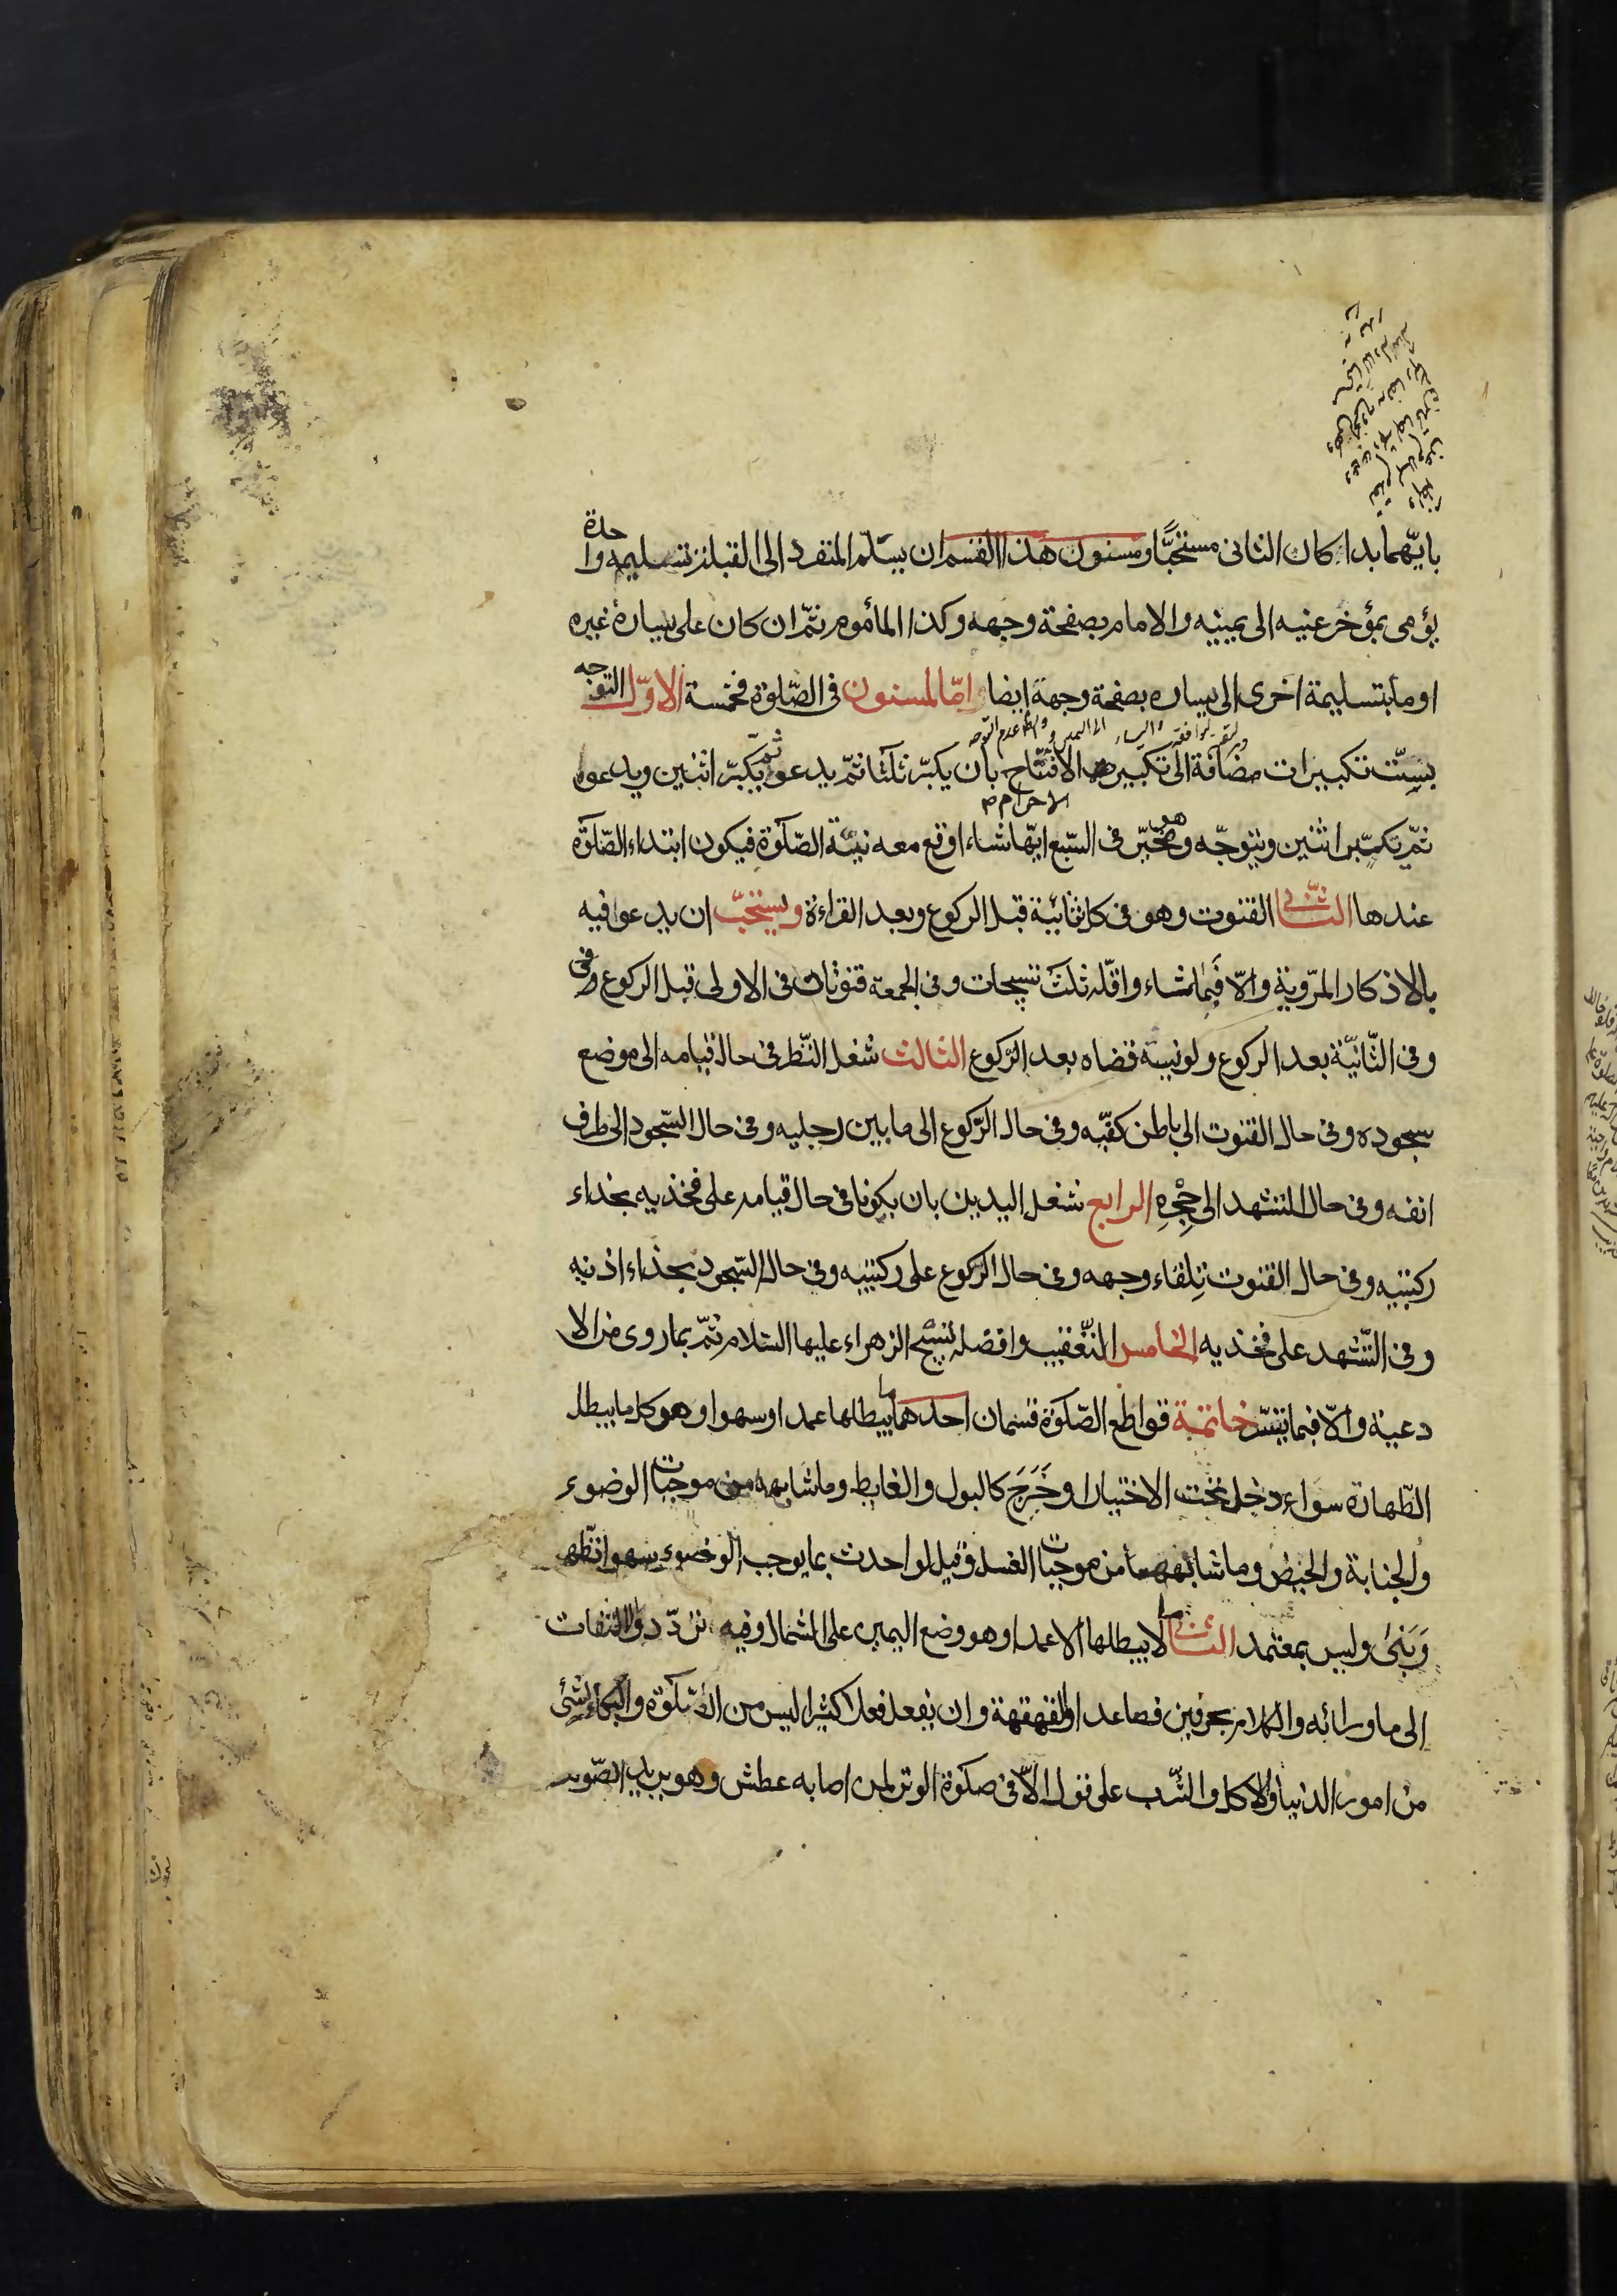 بايّهما بدا كان الثانى مستحبًّا ومسنون هذا القسم ان يسلّم المنفرد الى القبلة تسليمه واحدة
يؤمى بمؤخر عنيه الى يمينه والامام بصفحة وجهه وكذا المأموم ثمّ ان كان على يساره غيره
اومأ بتسليمة اخرى الى يساره بصفحة وجهه ايضا وامّا المسنون فى الصّلوة فخمسة الاوّل التوجه
بستّ تكبيرات مضافة الى تكبيره الافتتاح بان يكبّر ثلثا ثمّ يدعو ثمّ يكبّر اثنين ويدعوا
الاحرام
ثمّ يكبّر اثنين ويتوجّه وهو مخيّر فى السّبع ايّها شاء اوقع معه نيّة الصّلوة فيكون ابتداء الصّلوة
عندها الثّانى القنوت وهو فى كل ثانية قبل الركوع وبعد القراءة ويستحبّ ان يدعوا فيه
بالاذكار المرّوية والّا فبما شاء واقلّه ثلث تسبيحات وفى الجمعة قنوتان فى الاولى قبل الركوع وفى
وفى الثّانيّة بعد الركوع ولو نسيه قضاه بعد الرّكوع الثالث شغل النّظر فى حال قيامه الى موضع
سجوده وفى حال القنوت الى باطن كفّيه وفى حال الرّكوع الى ما بين رجليه وفى حال السّجود الى طرف
انفه وفى حال التشهد الى حِجْرِهِ الرابع شغل اليدين بان يكونا فى حال قيامه على فخذيه بحذاء
ركبتيه وفى حال القنوت تِلقاء وجهه وفى حال الرّكوع على ركبتيه وفى حال السّجود بحذاء اذنيه
وفى التّشهد على فخذيه الخامس التّعقيب وافضله تسبيح الزهراء عليها السّلام ثمّ بما روى من الا
دعية والّا فبما تيسّر خاتمة قواطع الصّلوة قسمان احدهما ما يبطلها عمدا وسهوا وهو كل ما يبطل
الطّهارة سواء دخل تحت الاختيار او خَرَجَ كالبول والغايط وما شابهه من موجبات الوضوء
والجنابة والحيض وما شابههما من موجبات الغسل وقيل لو احدث بما يوجب الوضوء سهوا تطّهر
وَبَنىٰ وليس بمعتمد الثّانى لا يبطلها الا عمدا وهو وضع اليمين على الشمال وفيه تردّد والالتفات
الى ما ورائه والكلام بحرفين فصاعدا والقهقهة وان يفعل فعلا كثيرا ليس من الصّلوة والبكاء لشئ
من امور الدّنيا والاكل والشّرب على قول الّا فى صلوة الوتر لمن اصابه عطش وهو يريد الصّوم